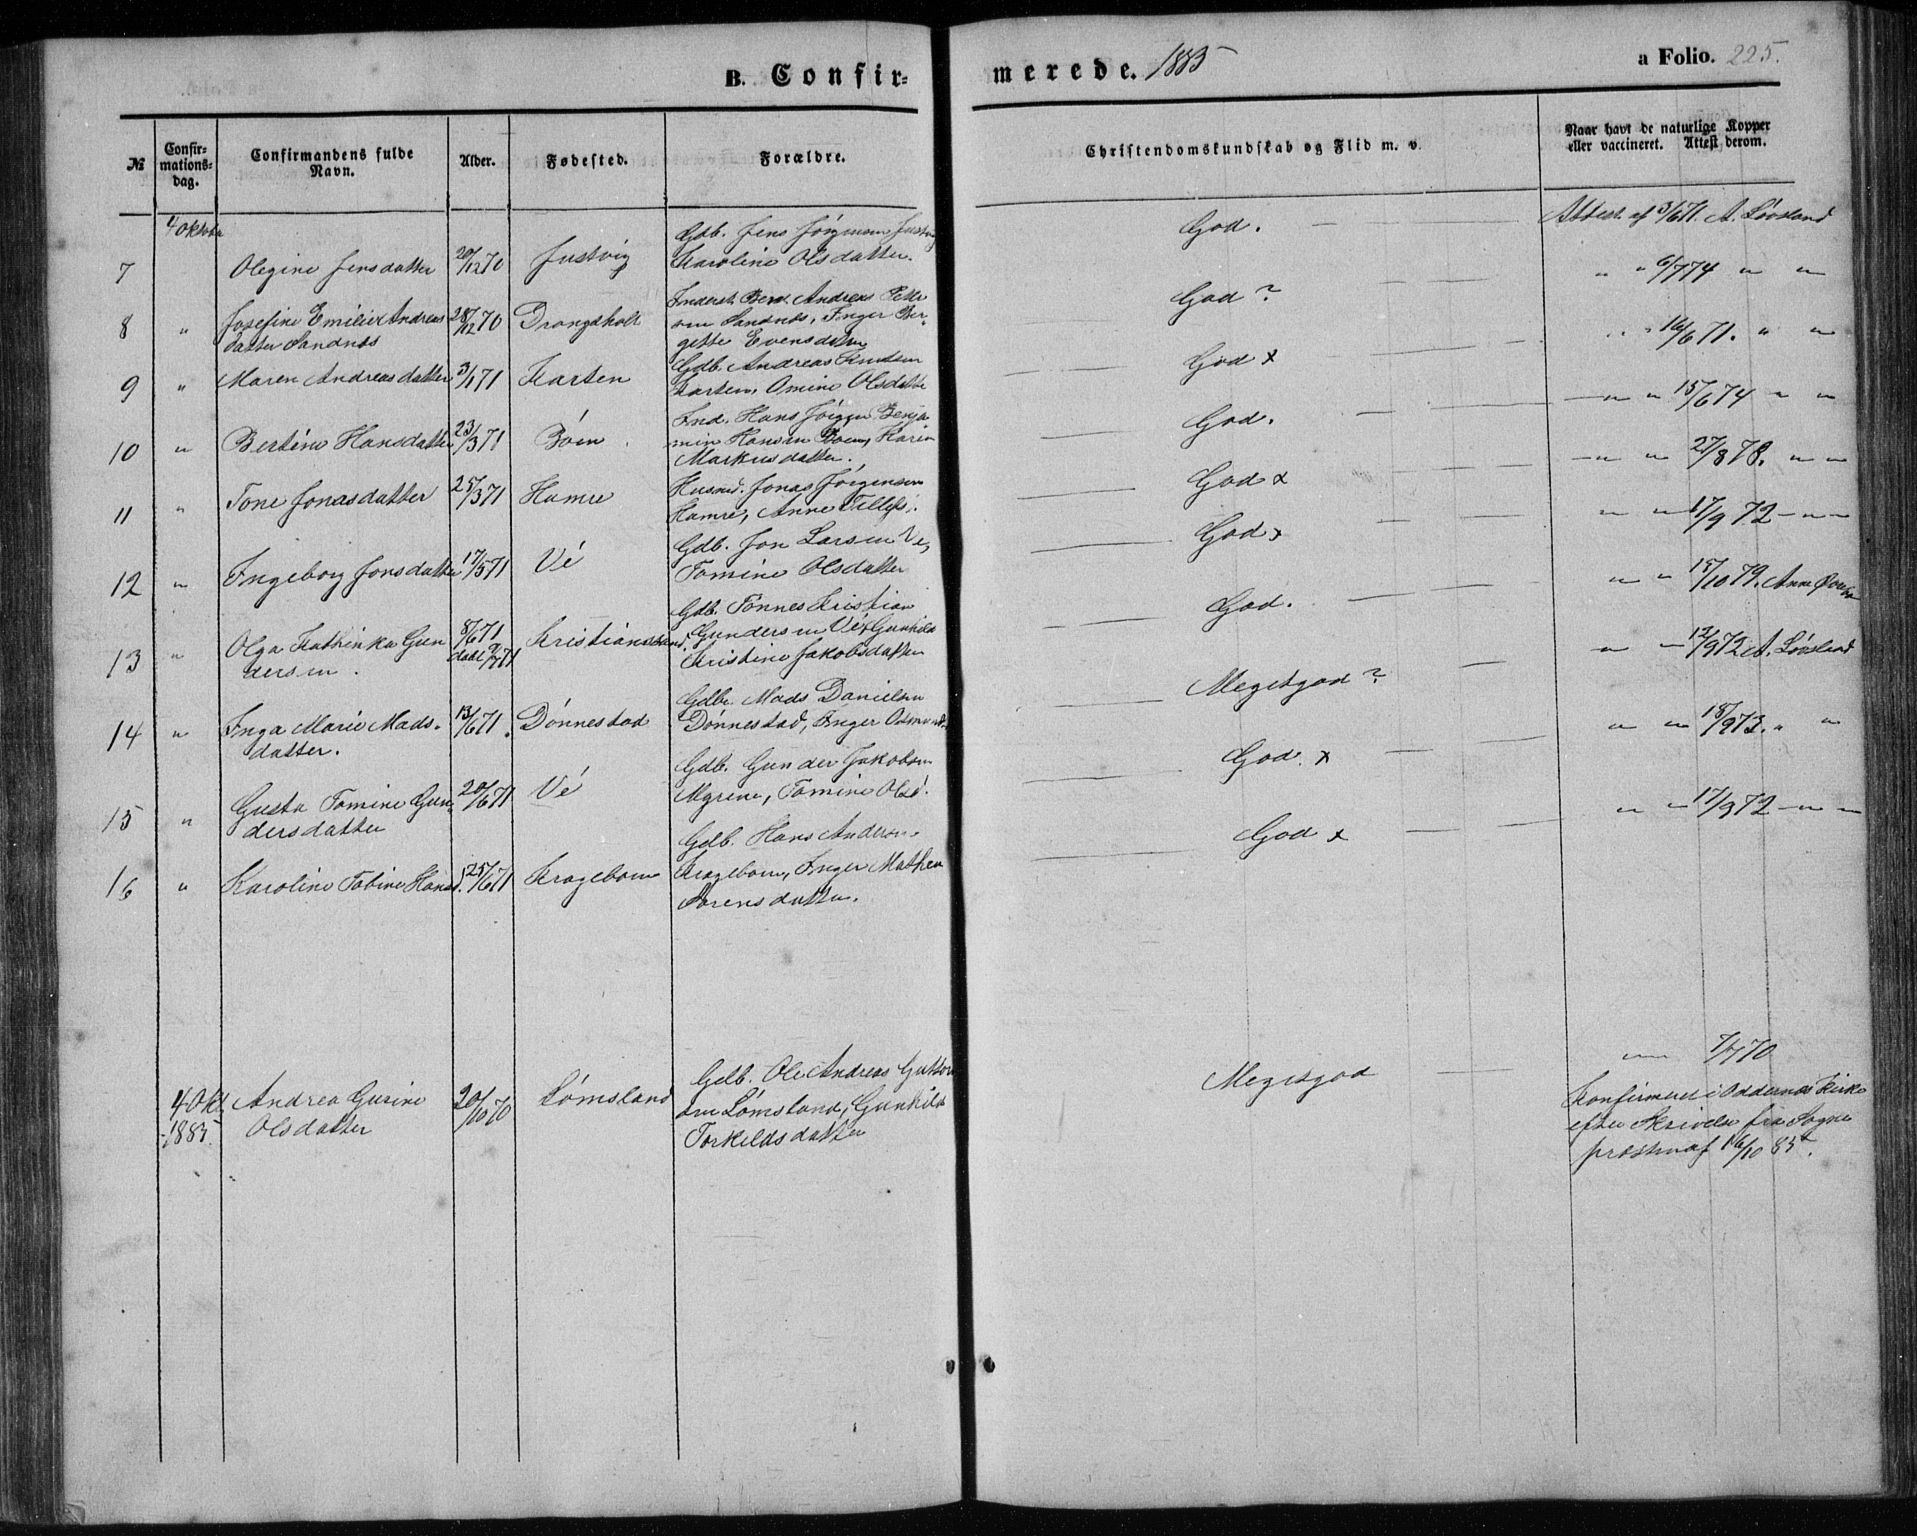 B. Confir-
merede. 1885
a Folio. 225.
№
Confir-
mations-
dag.
Confirmandens fulde
Navn.
Alder.
Fødested.
Forældre.
Christendomskundskab og Flid m. v.
Naar havt de naturlige Kopper
eller vaccineret. Attest derom.
4 Oktober
7
Olegine Jensdatter
20/12 70
Justvig
Gdb. Jens Jörgensen Justvig
Karoline Olsdatter.
God.
Attest af 3/6 71. A. Lövsland
8 "
Josefine Emilie Andreas
datter Sandnes
28/12 70
Drangsholt
Inderst. Andreas Peder
sen Sandnes, Inger Ber-
gitte Evensdatter
God ?
" " 6/7 74 " "
9 "
Maren Andreasdatter
3/1 71
Karten
Gdb. Andreas Knutsen
Karten, Omine Olsdatter
God x
" " 16/6 71. " "
10 "
Bertine Hansdatter
23/3 71
Böen
Ind. Hans Jörgen Benja
min Hansen Boen, Karen
Markusdatter.
God.
" " 15/6 74 " "
11 "
Tone Jonasdatter
25/3 71
Hamre
Husmd. Jonas Jörgensen
Hamre, Anne Tellefs.
God x
" " 27/8 78. " "
12 "
Ingeborg Jonsdatter
17/5 71
Vé
Gdb. Jon Larsen Ve,
Tomine Olsdatter
God x
" " 17/9 72 " "
13 "
Olga Kathinka Gun
dersen.
8/6 71
Kristianssand
Gdb. Tönnes Kristian
Gundersen Vé, Gunhild
Kristine Jakobsdatter
God.
" " 15/10 79. Anne
14 "
Inga Marie Mads-
datter.
13/6 71.
Dönnestad
Gdb. Mads Danielsen
Dönnestad, Inger Osmunds.
Megetgod ?
" " 12/9 72 A. Lövsland
15 "
Gusta Tomine Gun-
dersdatter
20/6 71
Vé
Gdb. Gunder Jakobsen
Myrene, Tomine Olsd.
God. x
" " 18/9 73. " "
16 "
Karoline Tobine Hansd.
25/6 71
Krageboen
Gdb. Hans Anderson
Krageboen, Inger Mathea
Sörensdatter.
God x
" " 17/9 72 " "
4 Okt
1885.
Andrea Gurine
Olsdatter
20/10 70
Lömsland
Gdb. Ole Andreas Guttorm
sen Lömsland, Gunhild
Torkildsdatter
Megetgod
" 1/7 70
Konfirmeret i Oddernes Kirke
efter Skrivelse fra Sogne
præsten af 16/10 85.